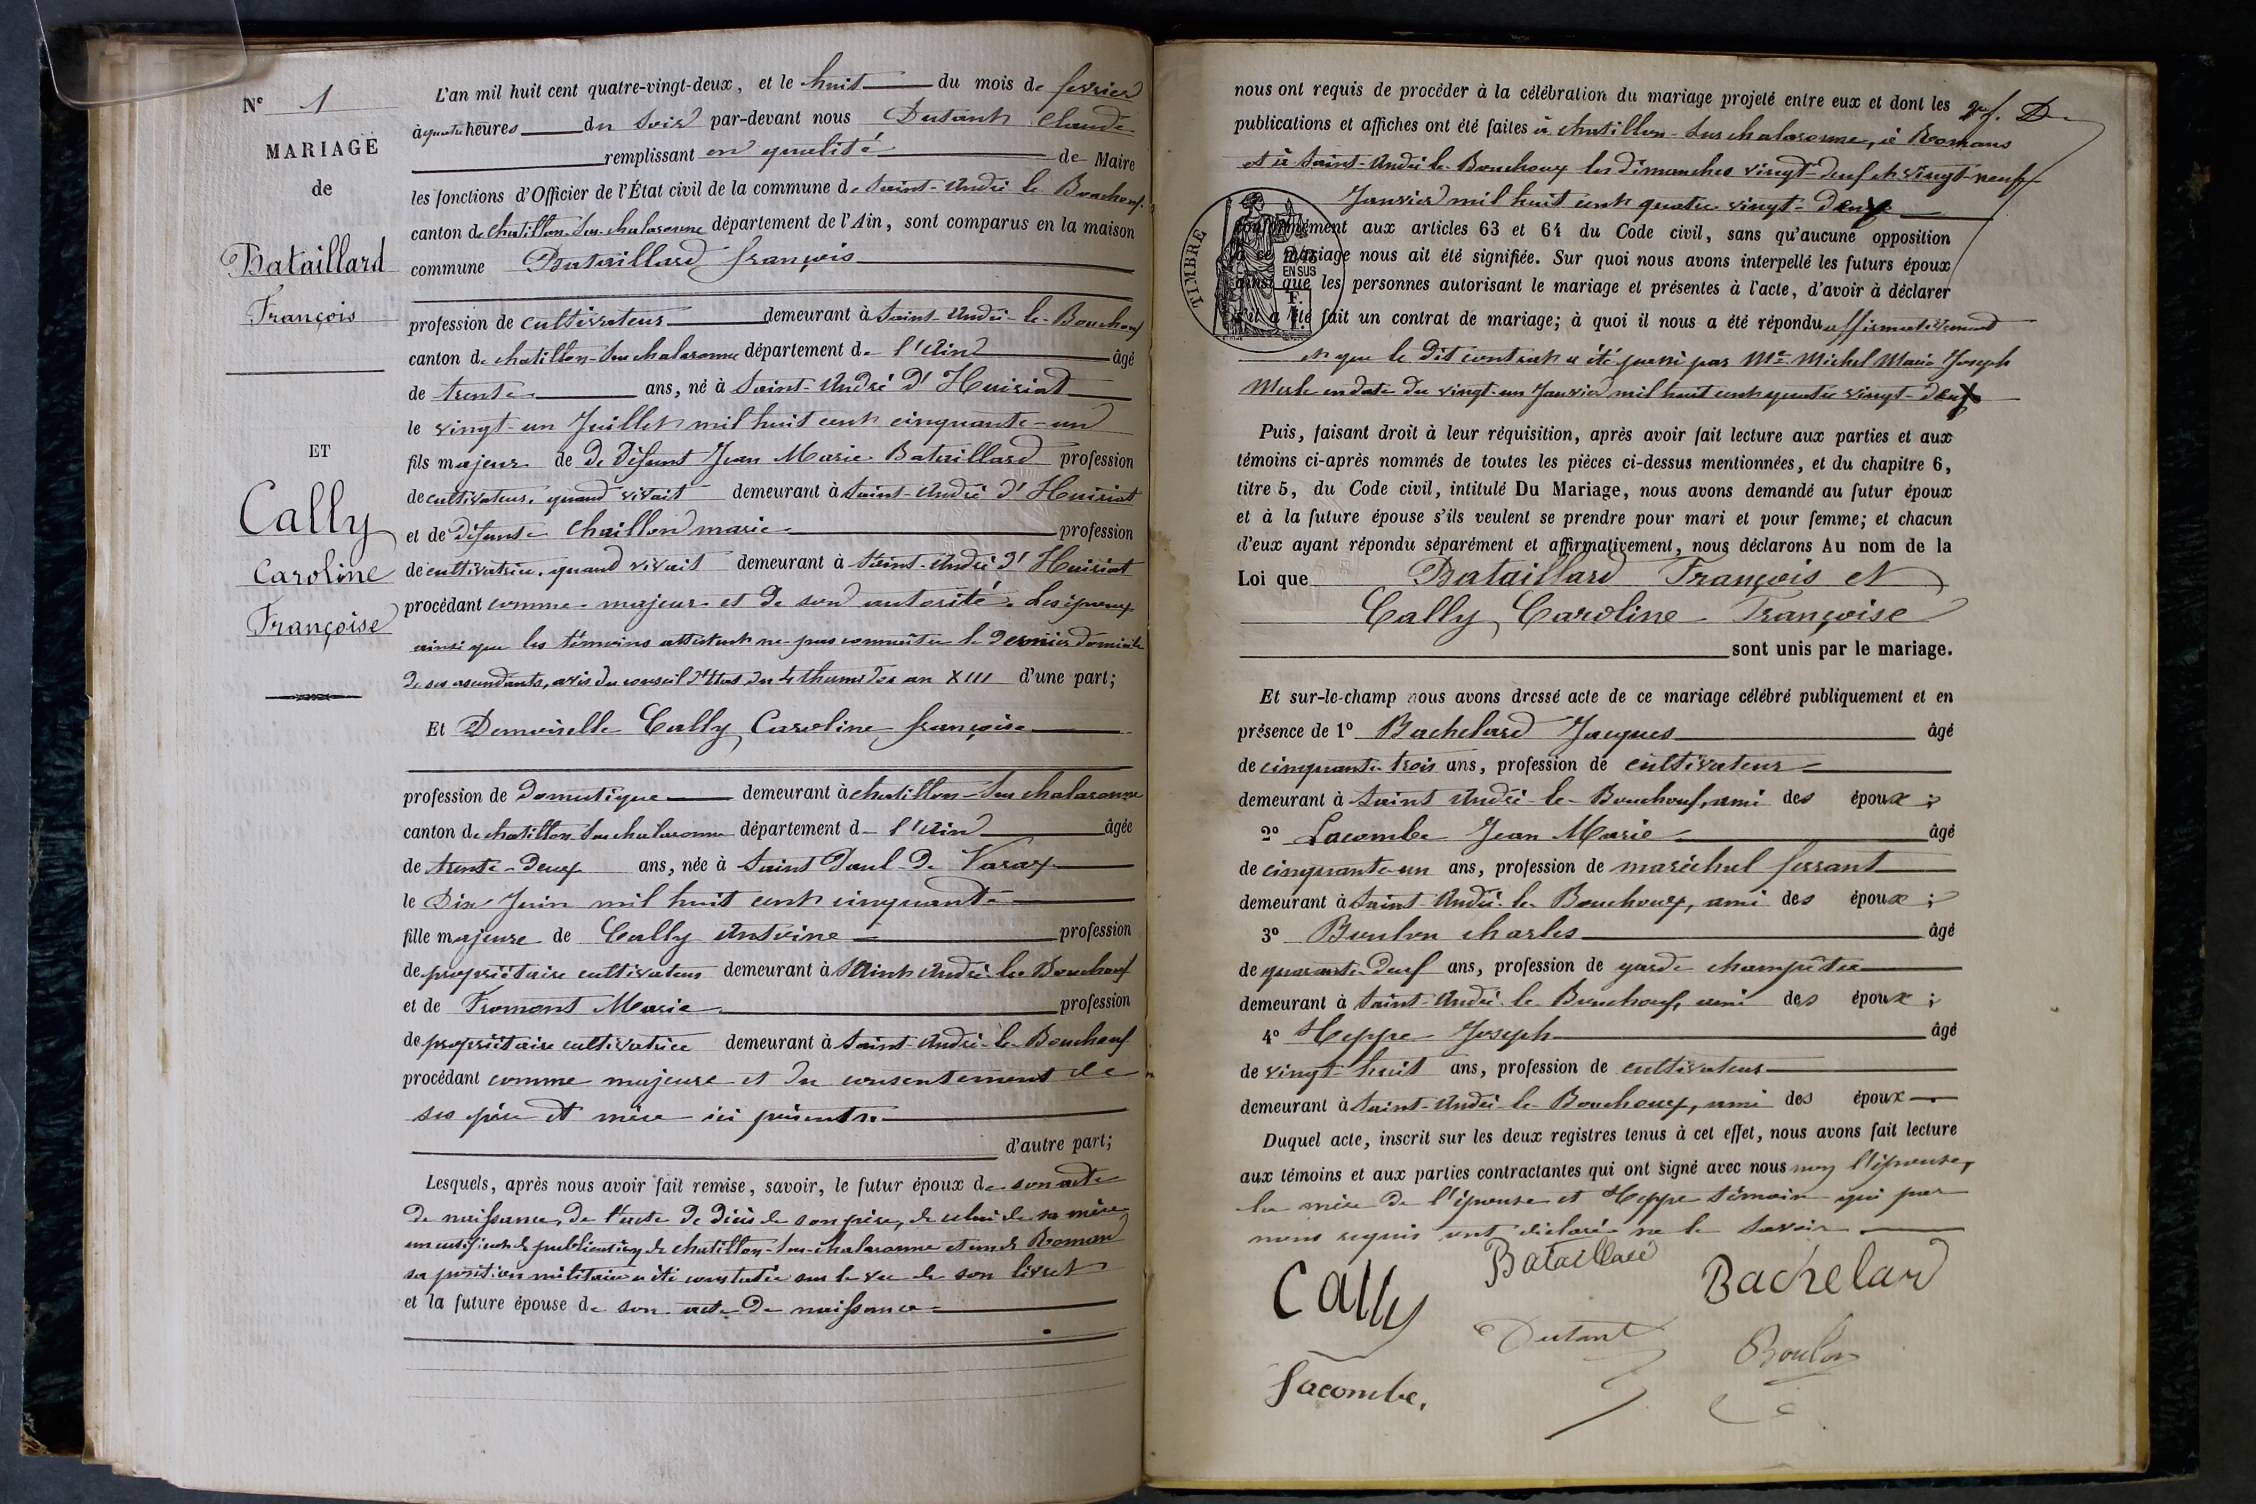 N° 1
MARIAGE
de
Bataillard
François
ET
Cally
Caroline
Françoise
L'an mil huit cent quatre-vingt-deux, et le huit du mois de fevrier
à quatre heures du soir par-devant nous Dutant Claude
remplissant en qualité de Maire
les fonctions d'Officier de l'État civil de la commune de Saint-André le Bouchoux
canton de chatillon-sur-chalaronne département de l'Ain, sont comparus en la maison
commune Bataillard françois
profession de cultivateur demeurant à Saint-André-le-Bouchoux
canton de chatillon-sur chalaronne département de l'Ain âgé
de trente ans, né à Saint-André d'Huiriat
le vingt-un Juillet mil huit cent cinquante-un
fils majeur de de défunt Jean Marie Bataillard profession
de cultivateur, quand vivait demeurant à Saint-André d'Huiriat
et de défunte Chaillon marie profession
de cultivatrice, quand vivait demeurant à Saint-André d'Huiriat
procédant comme majeur et de son autorité. Les époux
ainsi que les témoins attestent ne pas connaître le dernier domicile
de ses ascendants, avis du conseil d'Etat du 4 thermidor an XIII d'une part;
Et Demoiselle Cally Caroline françoise
profession de domestique demeurant à chatillon-sur chalaronne
canton de chatillon-sur chalaronne département de l'Ain âgée
de trente-deux ans, née à Saint Paul-de Varax
le Dix Juin mil huit cent cinquante
fille majeure de Cally Antoine profession
de propriétaire cultivateur demeurant à Saint André-le Bouchoux
et de Fromont Marie profession
de propriétaire cultivatrice demeurant à Saint-André-le-Bouchoux
procédant comme majeure et du consentement de
ses père et mère ici présents
d'autre part;
Lesquels, après nous avoir fait remise, savoir, le futur époux de son acte
de naissance, de l'acte de décès de son père, de celui de sa mère
un certificat de publication de chatillon-sur-chalaronne et un de Romans
sa position militaire a été constatée sur le vu de son livret
et la future épouse de son acte de naissance
nous ont requis de procéder à la célébration du mariage projeté entre eux et dont les
publications et affiches ont été faites à chatillon-sur chalaronne, à Romans
et à Saint-André-le-Bouchoux les dimanches vingt-deux et vingt-neuf
Janvier mil huit cent quatre vingt-deux
conformément aux articles 63 et 64 du Code civil, sans qu'aucune opposition
à ce mariage nous ait été signifiée. Sur quoi nous avons interpellé les futurs époux
ainsi que les personnes autorisant le mariage et présentes à l'acte, d'avoir à déclarer
s'il a été fait un contrat de mariage; à quoi il nous a été répondu affirmativement
et que le dit contrat a été passé par Me Michel Marie Joseph
Merle en date du vingt-un Janvier mil huit cent quatre vingt-deux
TIMBRE
2/10
EN SUS
Puis, faisant droit à leur réquisition, après avoir fait lecture aux parties et aux
témoins ci-après nommés de toutes les pièces ci-dessus mentionnées, et du chapitre 6,
titre 5, du Code civil, intitulé Du Mariage, nous avons demandé au futur époux
et à la future épouse s'ils veulent se prendre pour mari et pour femme; et chacun
d'eux ayant répondu séparément et affirmativement, nous déclarons Au nom de la
Loi que Bataillard François et
Cally Caroline Françoise
sont unis par le mariage.
Et sur-le-champ nous avons dressé acte de ce mariage célébré publiquement et en
présence de 1° Bachelard Jacques âgé
de cinquante-trois ans, profession de cultivateur
demeurant à Saint André-le-Bouchoux, ami des époux ;
2° Lacombe Jean Marie âgé
de cinquante-un ans, profession de maréchal ferrant
demeurant à Saint-André-le-Bouchoux, ami des époux ;
3° Boulon charles âgé
de quarante-deux ans, profession de garde champêtre
demeurant à Saint-André-le Bouchoux, ami des époux ;
4° Heppe Joseph âgé
de vingt-huit ans, profession de cultivateur
demeurant à Saint-André-le-Bouchoux, ami des époux
Duquel acte, inscrit sur les deux registres tenus à cet effet, nous avons fait lecture
aux témoins et aux parties contractantes qui ont signé avec nous non l'épouse,
la mère de l'épouse et Heppe témoin qui par
nous requis ont déclaré ne le savoir
Cally Bataillard Bachelard
Dutant Boulon
Lacombe.